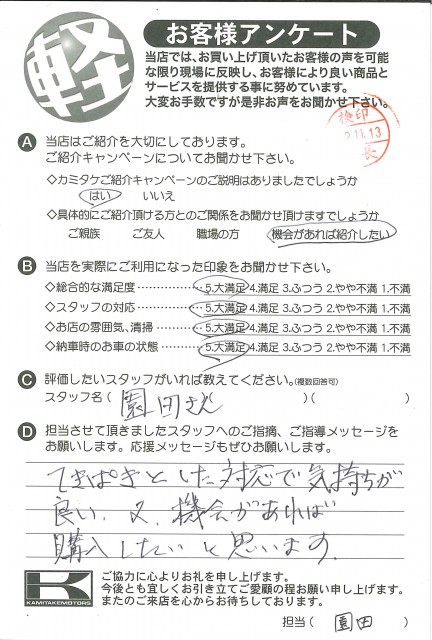 軽
お客様アンケート
当店では、お買い上げ頂いたお客様の声を可能
な限り現場に反映し、お客様により良い商品と
サービスを提供する事に努めています。
大変お手数ですが是非お声をお聞かせ下さい。
検印
2.11.13
長
A 当店はご紹介を大切にしております。
ご紹介キャンペーンについてお聞かせ下さい。
◇カミタケご紹介キャンペーンのご説明はありましたでしょうか
はい いいえ
◇具体的にご紹介頂ける方とのご関係をお聞かせ頂けますでしょうか
ご親族 ご友人 職場の方 機会があれば紹介したい
B 当店を実際にご利用になった印象をお聞かせ下さい。
◇総合的な満足度…………5.大満足 4.満足 3.ふつう 2.やや不満 1.不満
◇スタッフの対応…………5.大満足 4.満足 3.ふつう 2.やや不満 1.不満
◇お店の雰囲気、清掃……5.大満足 4.満足 3.ふつう 2.やや不満 1.不満
◇納車時のお車の状態……5.大満足 4.満足 3.ふつう 2.やや不満 1.不満
C 評価したいスタッフがいれば教えてください。(複数回答可)
スタッフ名( 園田さん )( )( )
D 担当させて頂きましたスタッフへのご指摘、ご指導メッセージを
お願いします。応援メッセージもぜひお願いします。
てきぱきとした対応で気持ちが
良い。又、機会があれば
購入したいと思います。
K
KAMITAKEMOTORS
ご協力に心よりお礼を申し上げます。
今後とも宜しくお引き立てご愛顧の程お願い申し上げます。
またのご来店を心からお待ちしております。
担当( 園田 )